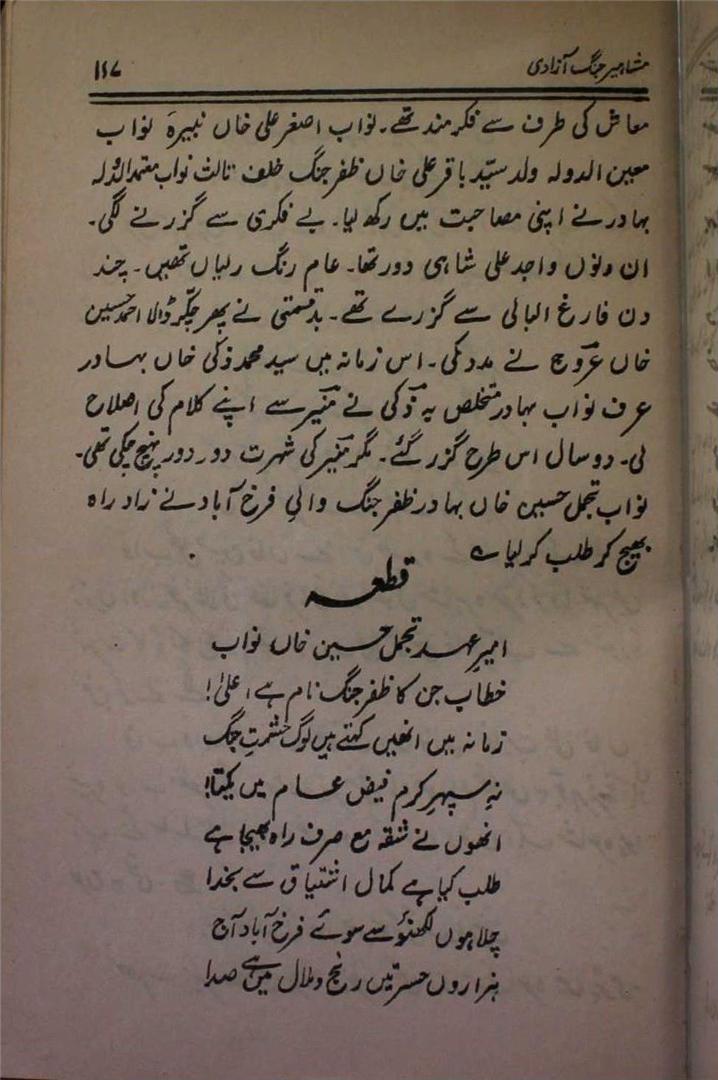 مشاہیر جنگ آزادی
۱۱۷
معاش کی طرف سے فکر مند تھے۔ نواب اصغر علی خاں نبیرۂ نواب
معین الدولہ ولد سیّد باقر علی خاں ظفر جنگ خلف ثالث نواب معتمد الدولہ
بہادر نے اپنی مصاحبت میں رکھ لیا۔ بے فکری سے گزرنے لگی۔
ان دنوں واجد علی شاہی دور تھا۔ عام رنگ رلیاں تھیں۔ چند
دن فارغ البالی سے گزرے تھے۔ بدقسمتی نے پھر چکّر ڈالا احمد حسین
خاں عروج نے مدد کی۔ اس زمانہ میں سید محمد ذکی خاں بہادر
عرف نواب بہادر متخلص بہ ذکی نے منیر سے اپنے کلام کی اصلاح
لی۔ دو سال اس طرح گزر گئے۔ مگر منیر کی شہرت دور دور پہنچ چکی تھی۔
نواب تجمل حسین خاں بہادر ظفر جنگ والیِ فرخ آباد نے زاد راہ
بھیج کر طلب کر لیا ے
قطعہ
امیرِ عہد تجمل حسین خاں نواب
خطاب جن کا ظفر جنگ نام ہے اعلیٰ!
زمانہ میں انھیں کہتے ہیں لوگ حشمت جنگ
نہِ سپہرِ کرم فیض عام میں یکتا!
انھوں نے شقہ مع صرف راہ بھیجا ہے
طلب کیا ہے کمال اشتیاق سے بخدا
چلا ہوں لکھنؤ سے سوئے فرخ آباد آج
ہزاروں حسرتیں رنج و ملال میں ہے صدا